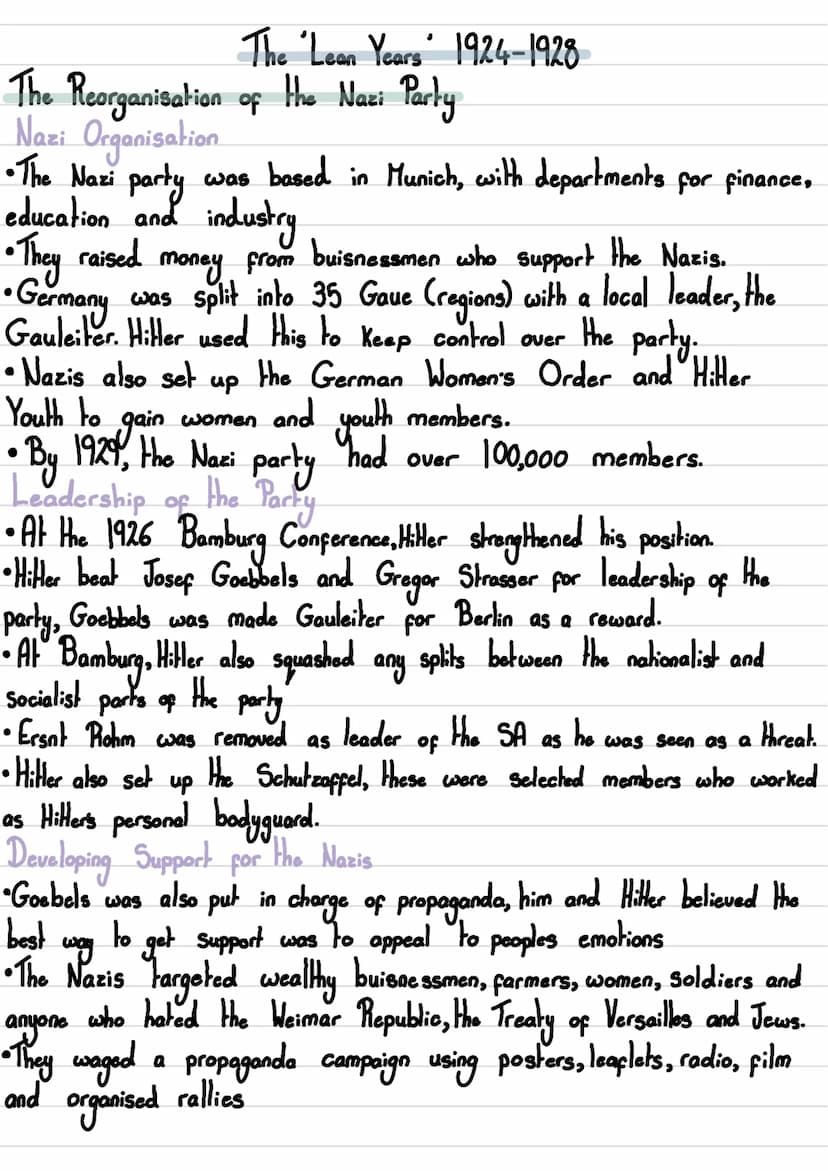 The 'Lean Years' 1924-1928
The Reorganisation of the Nazi Party
Nazi Organisation
•The Nazi party was based in Munich, with departments for finance,
education and industry
•They raised money from buisnessmen who support the Nazis.
•Germany was split into 35 Gaue (regions) with a local leader, the
Gauleiter. Hitler used this to keep control over the party.
•Nazis also set up the German Women's Order and Hitler
Youth to gain women and youth members.
•By 1929, the Nazi party had over 100,000 members.
Leadership of the Party
•At the 1926 Bamburg Conference, Hitler strengthened his position.
•Hitler beat Josef Goebbels and Gregor Strasser for leadership of the
party, Goebbels was made Gauleiter for Berlin as a reward.
•At Bamburg, Hitler also squashed any splits between the nationalist and
socialist parts of the party
•Ersnt Rohm was removed as leader of the SA as he was seen as a threat.
•Hitler also set up the Schutzaffel, these were selected members who worked
as Hitler's personal bodyguard.
Developing Support for the Nazis
•Goebels was also put in charge of propaganda, him and Hitler believed the
best way to get support was to appeal to peoples emotions
•The Nazis targeted wealthy buisnessmen, farmers, women, soldiers and
anyone who hated the Weimar Republic, the Treaty of Versailles and Jews.
•They waged a propaganda campaign using posters, leaflets, radio, film
and organised rallies